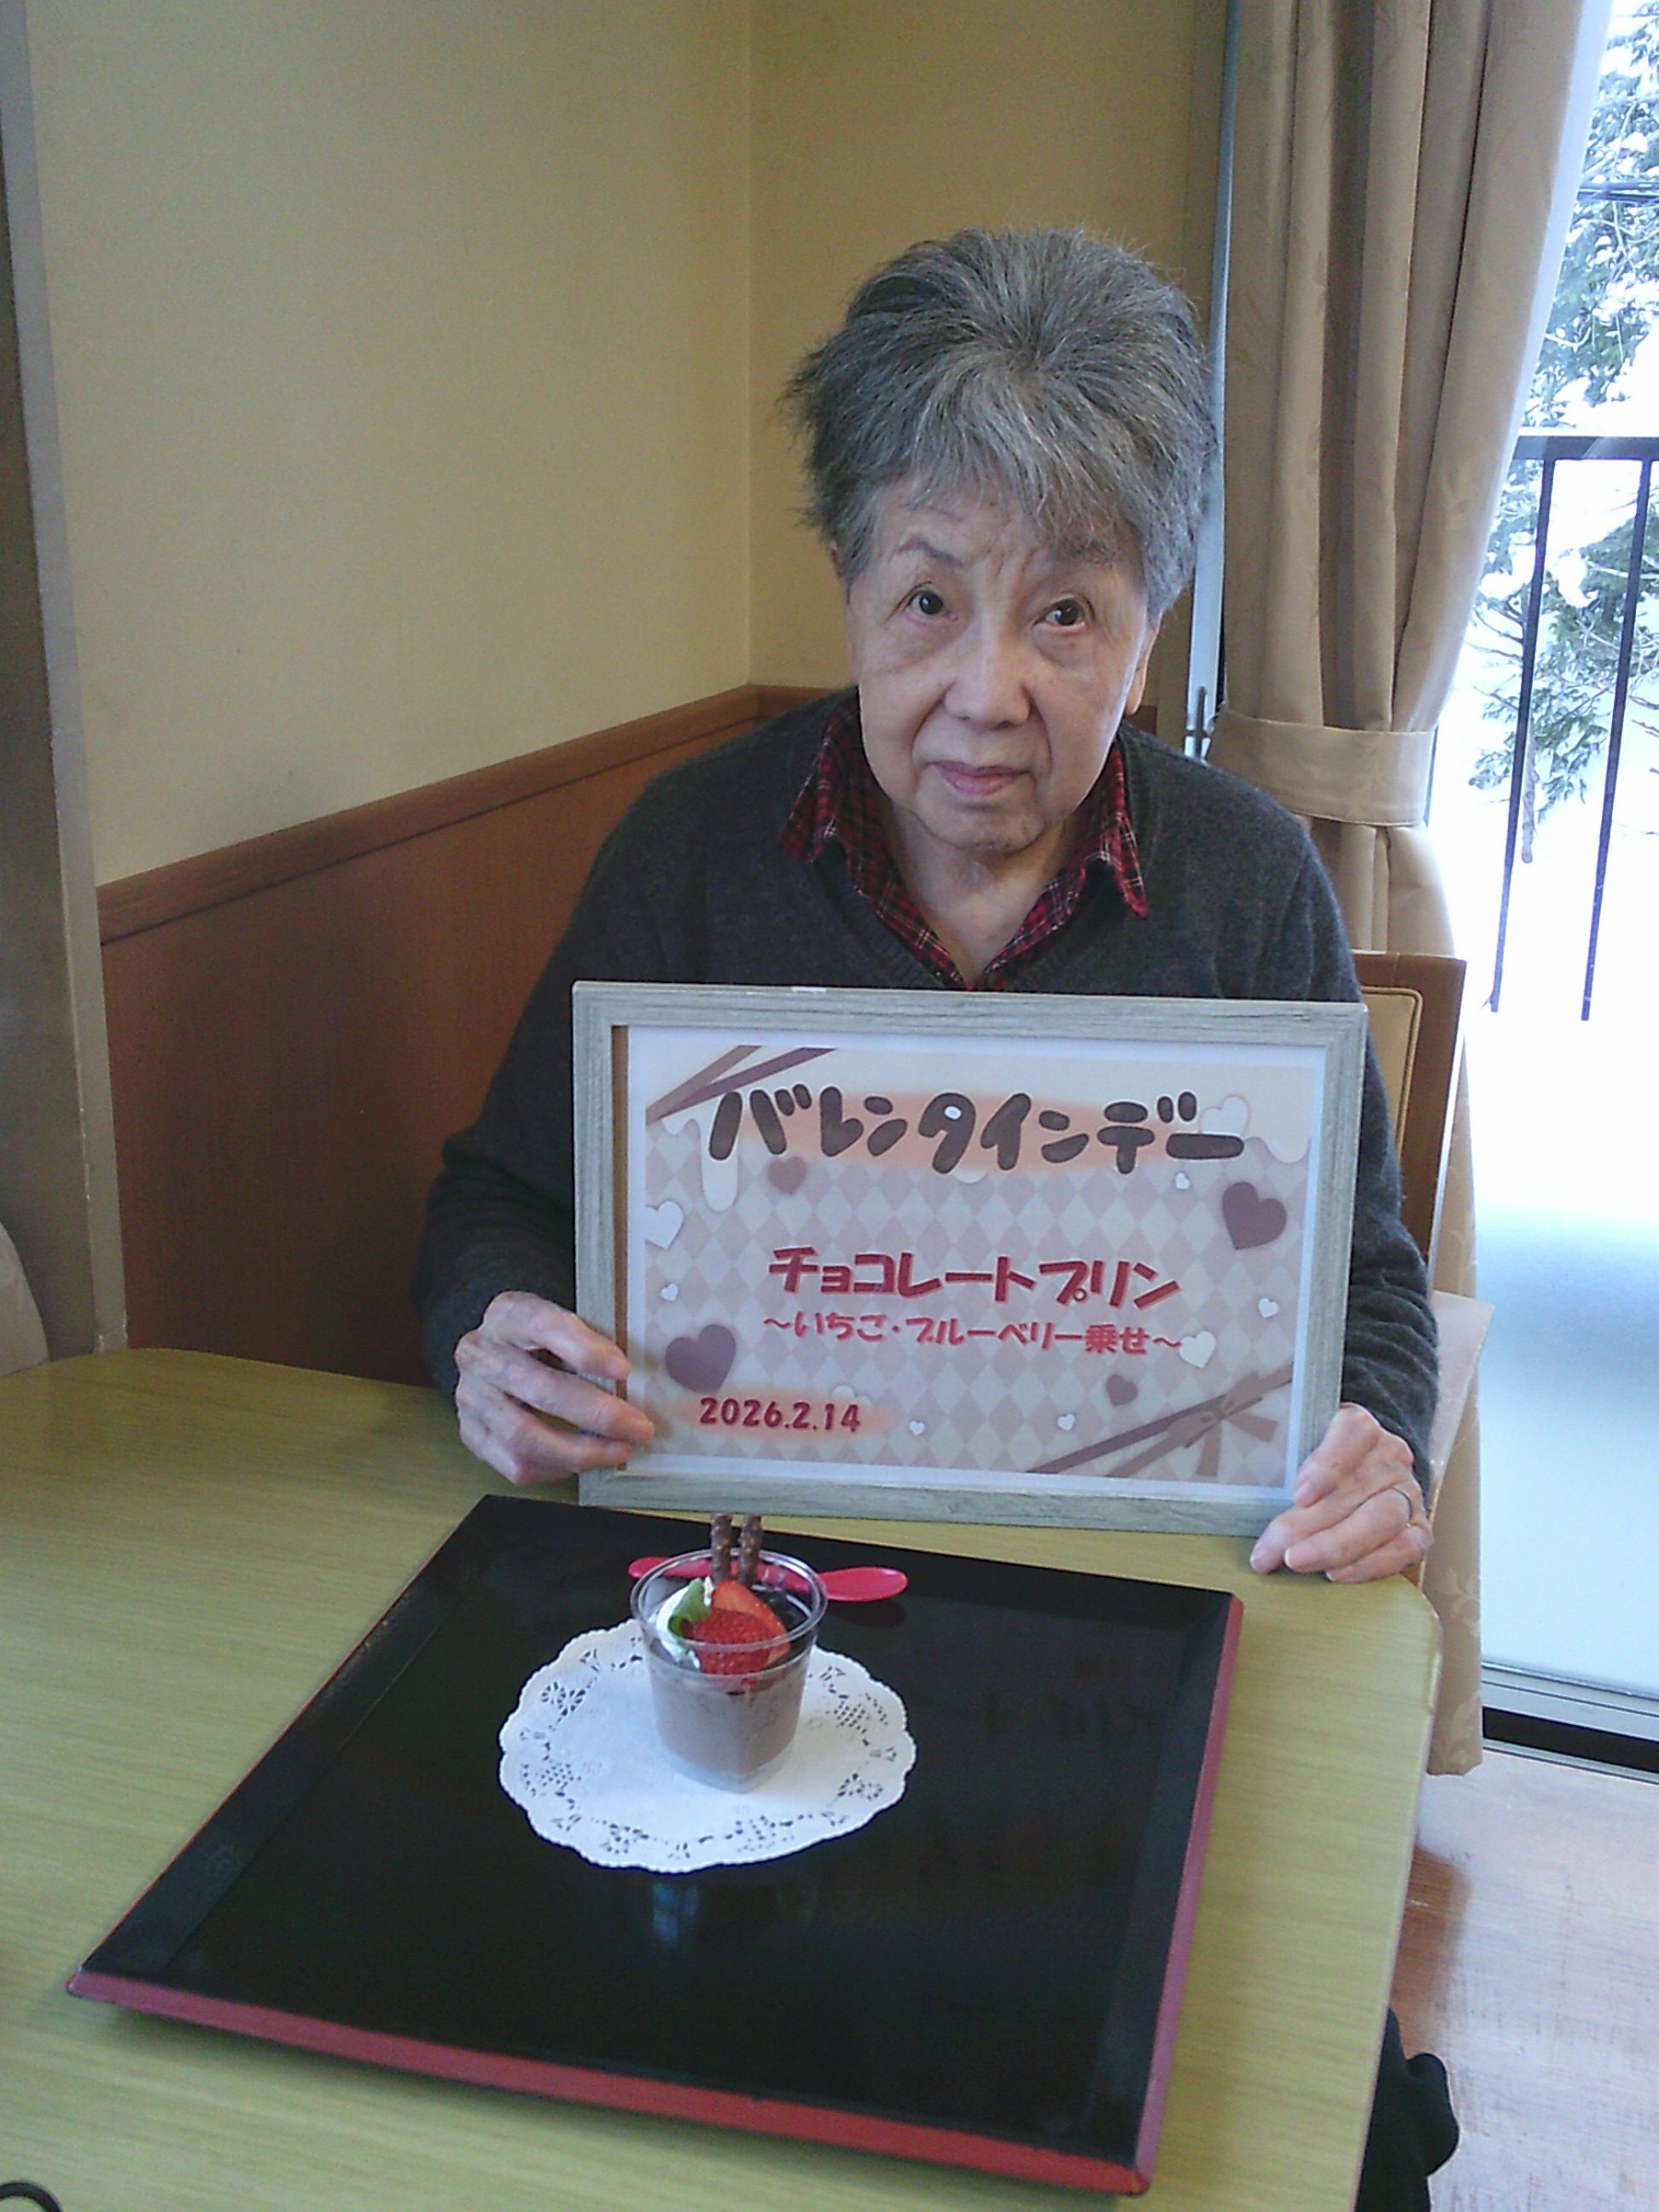 バレンタインデー
チョコレートプリン
～いちご・ブルーベリー乗せ～
2026.2.14